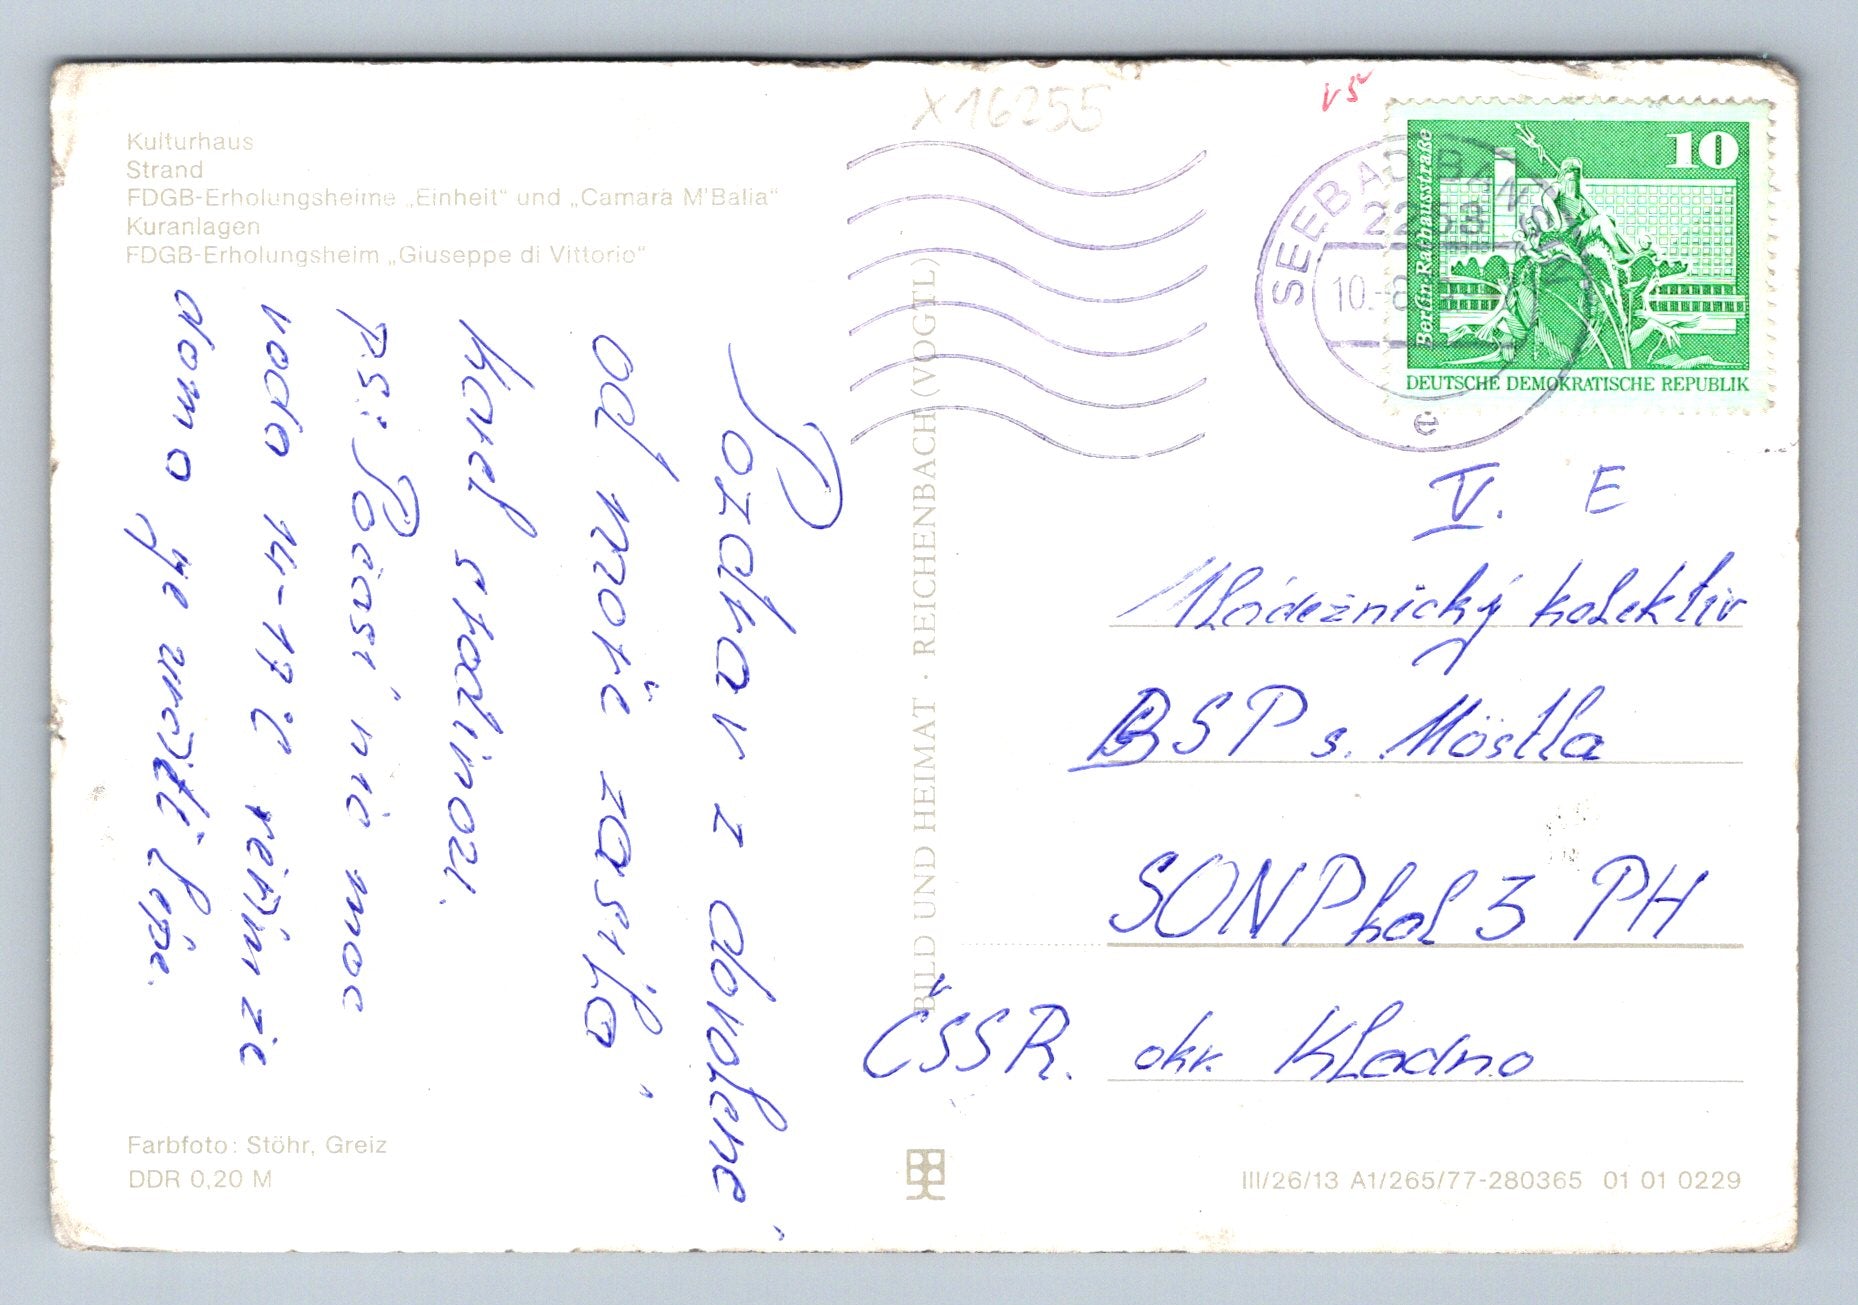 X16255
V5
Kulturhaus
Strand
FDGB-Erholungsheime „Einheit" und „Camara M'Balia"
Kuranlagen
FDGB-Erholungsheim „Giuseppe di Vittorio"
Pozdrav z dovolené
od moře zasílá
Karel
P.S.: Počasí nic moc
voda 14-17°C
doma je určitě lépe.
BILD UND HEIMAT · REICHENBACH (VOGTL)
SEEBAD BANSIN
2253
10.-8.
e
10
Berlin-Rathausstraße
DEUTSCHE DEMOKRATISCHE REPUBLIK
V. E
Mládežnický kolektiv
BSP s. Möstla
SONP Kol 3 PH
ČSSR. okr. Kladno
Farbfoto: Stöhr, Greiz
DDR 0,20 M
III/26/13 A1/265/77-280365 01 01 0229